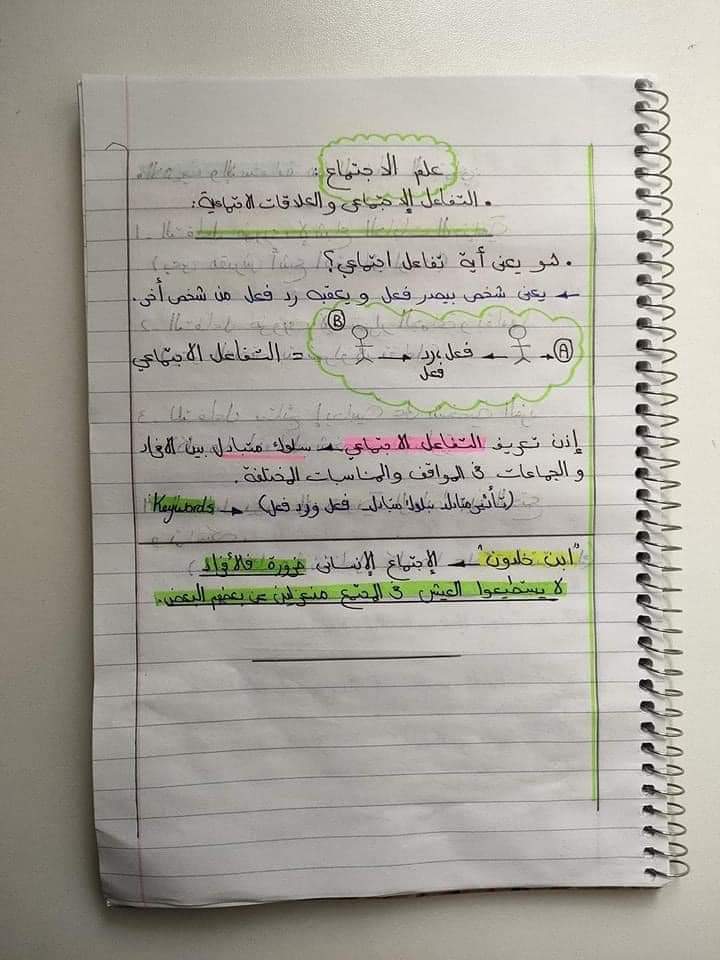 علم الاجتماع :
• التفاعل الإجتماعي والعلاقات الاجتماعية:
• هو يعنى أية تفاعل اجتماعي؟
← يعنى شخص بيصدر فعل ويعقبه رد فعل من شخص أخر.
A → ← فعل، رد فعل → B = التفاعل الاجتماعي
إذن تعريف التفاعل الاجتماعي ← سلوك متبادل بين الافراد
والجماعات فى المواقف والمناسبات المختلفة.
(تأثير متبادل، سلوك متبادل، فعل ورد فعل) ← Keywords
"ابن خلدون" ← الإجتماع الإنسانى ضرورة فالأفراد
لا يستطيعوا العيش فى المجتمع منعزلين عن بعضهم البعض.